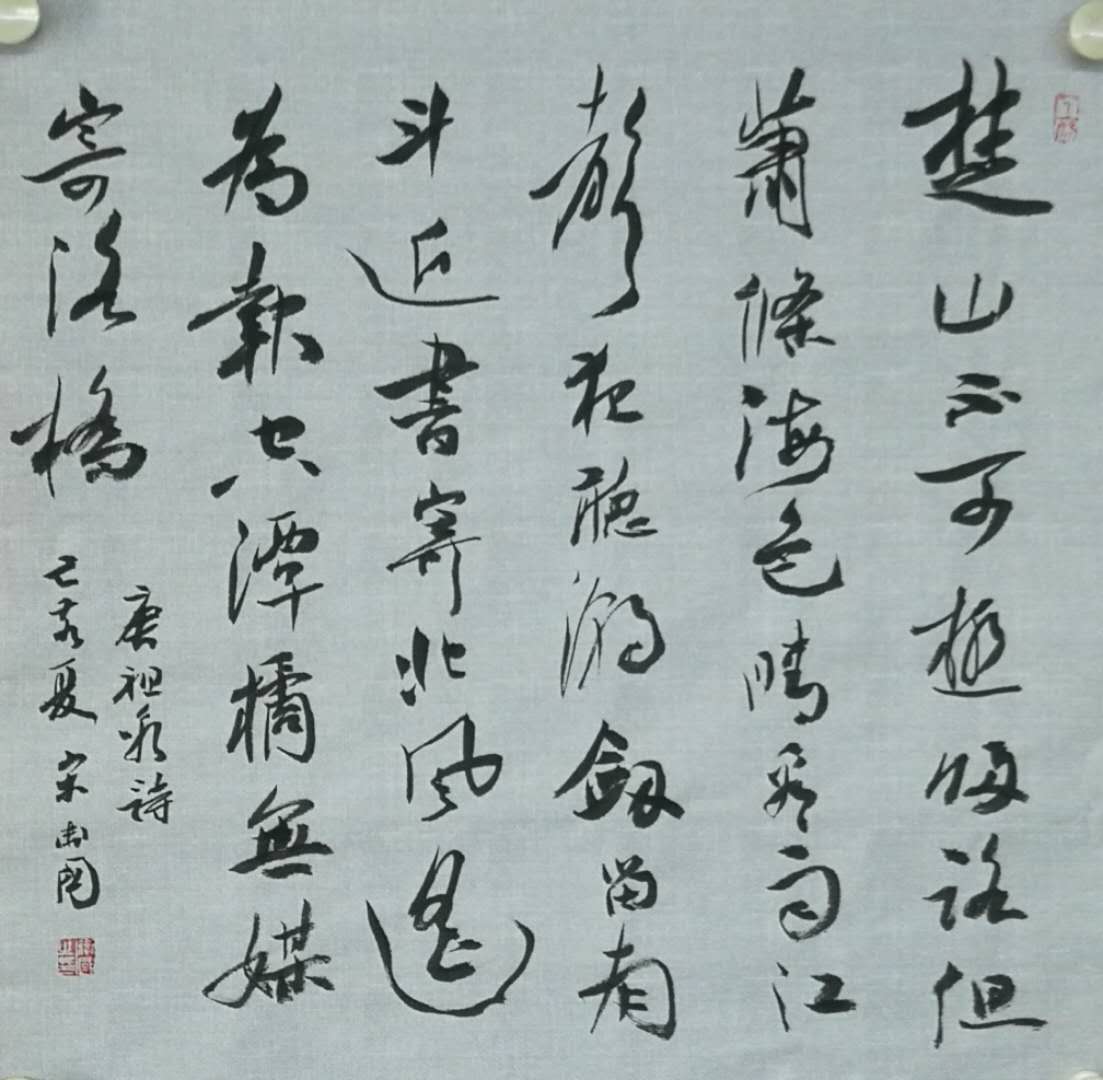 楚山不可極歸路但
蕭條海色晴看雨江
聲夜聽潮劔留南
斗近書寄北風遙
為報空潭橘無媒
寄洛橋
唐祖詠詩
己亥夏 宋